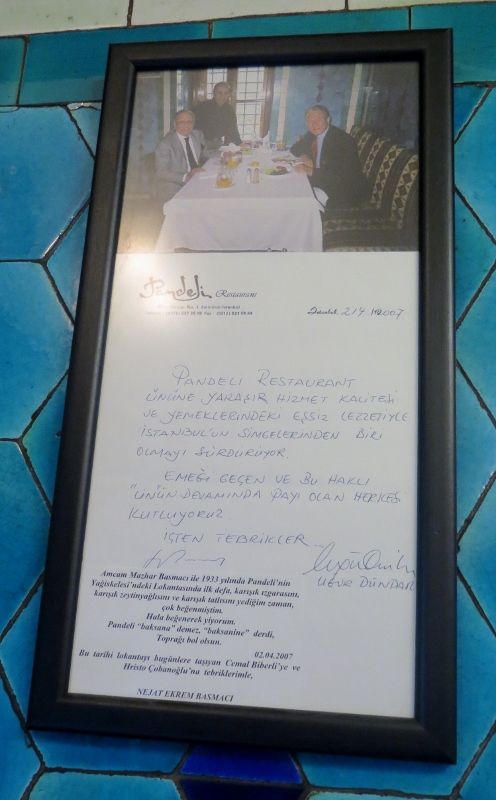 Pandeli Restaurant
No. 1 Eminönü-İstanbul
İstanbul 2/4/2007
PANDELI RESTAURANT
ÜNÜNE YARAŞIR HİZMET KALİTESİ
VE YEMEKLERİNDEKİ EŞSİZ LEZZETİYLE
İSTANBUL'UN SİMGELERİNDEN BİRİ
OLMAYI SÜRDÜRÜYOR.
EMEĞİ GEÇEN VE BU HAKLI
ÜNÜN DEVAMINDA PAYI OLAN HERKESİ
KUTLUYORUZ
İÇTEN TEBRİKLER...
UĞUR DÜNDAR
Amcam Mazhar Basmacı ile 1933 yılında Pandeli'nin
Yağiskelesi'ndeki Lokantasında ilk defa, karışık ızgarasını,
karışık zeytinyağlısını ve karışık tatlısını yediğim zaman,
çok beğenmiştim.
Hala beğenerek yiyorum.
Pandeli "baksana" demez, "baksanine" derdi,
Toprağı bol olsun.
02.04.2007
Bu tarihi lokantayı bugünlere taşıyan Cemal Biberli'ye ve
Hristo Çobanoğlu'na tebriklerimle,
NEJAT EKREM BASMACI